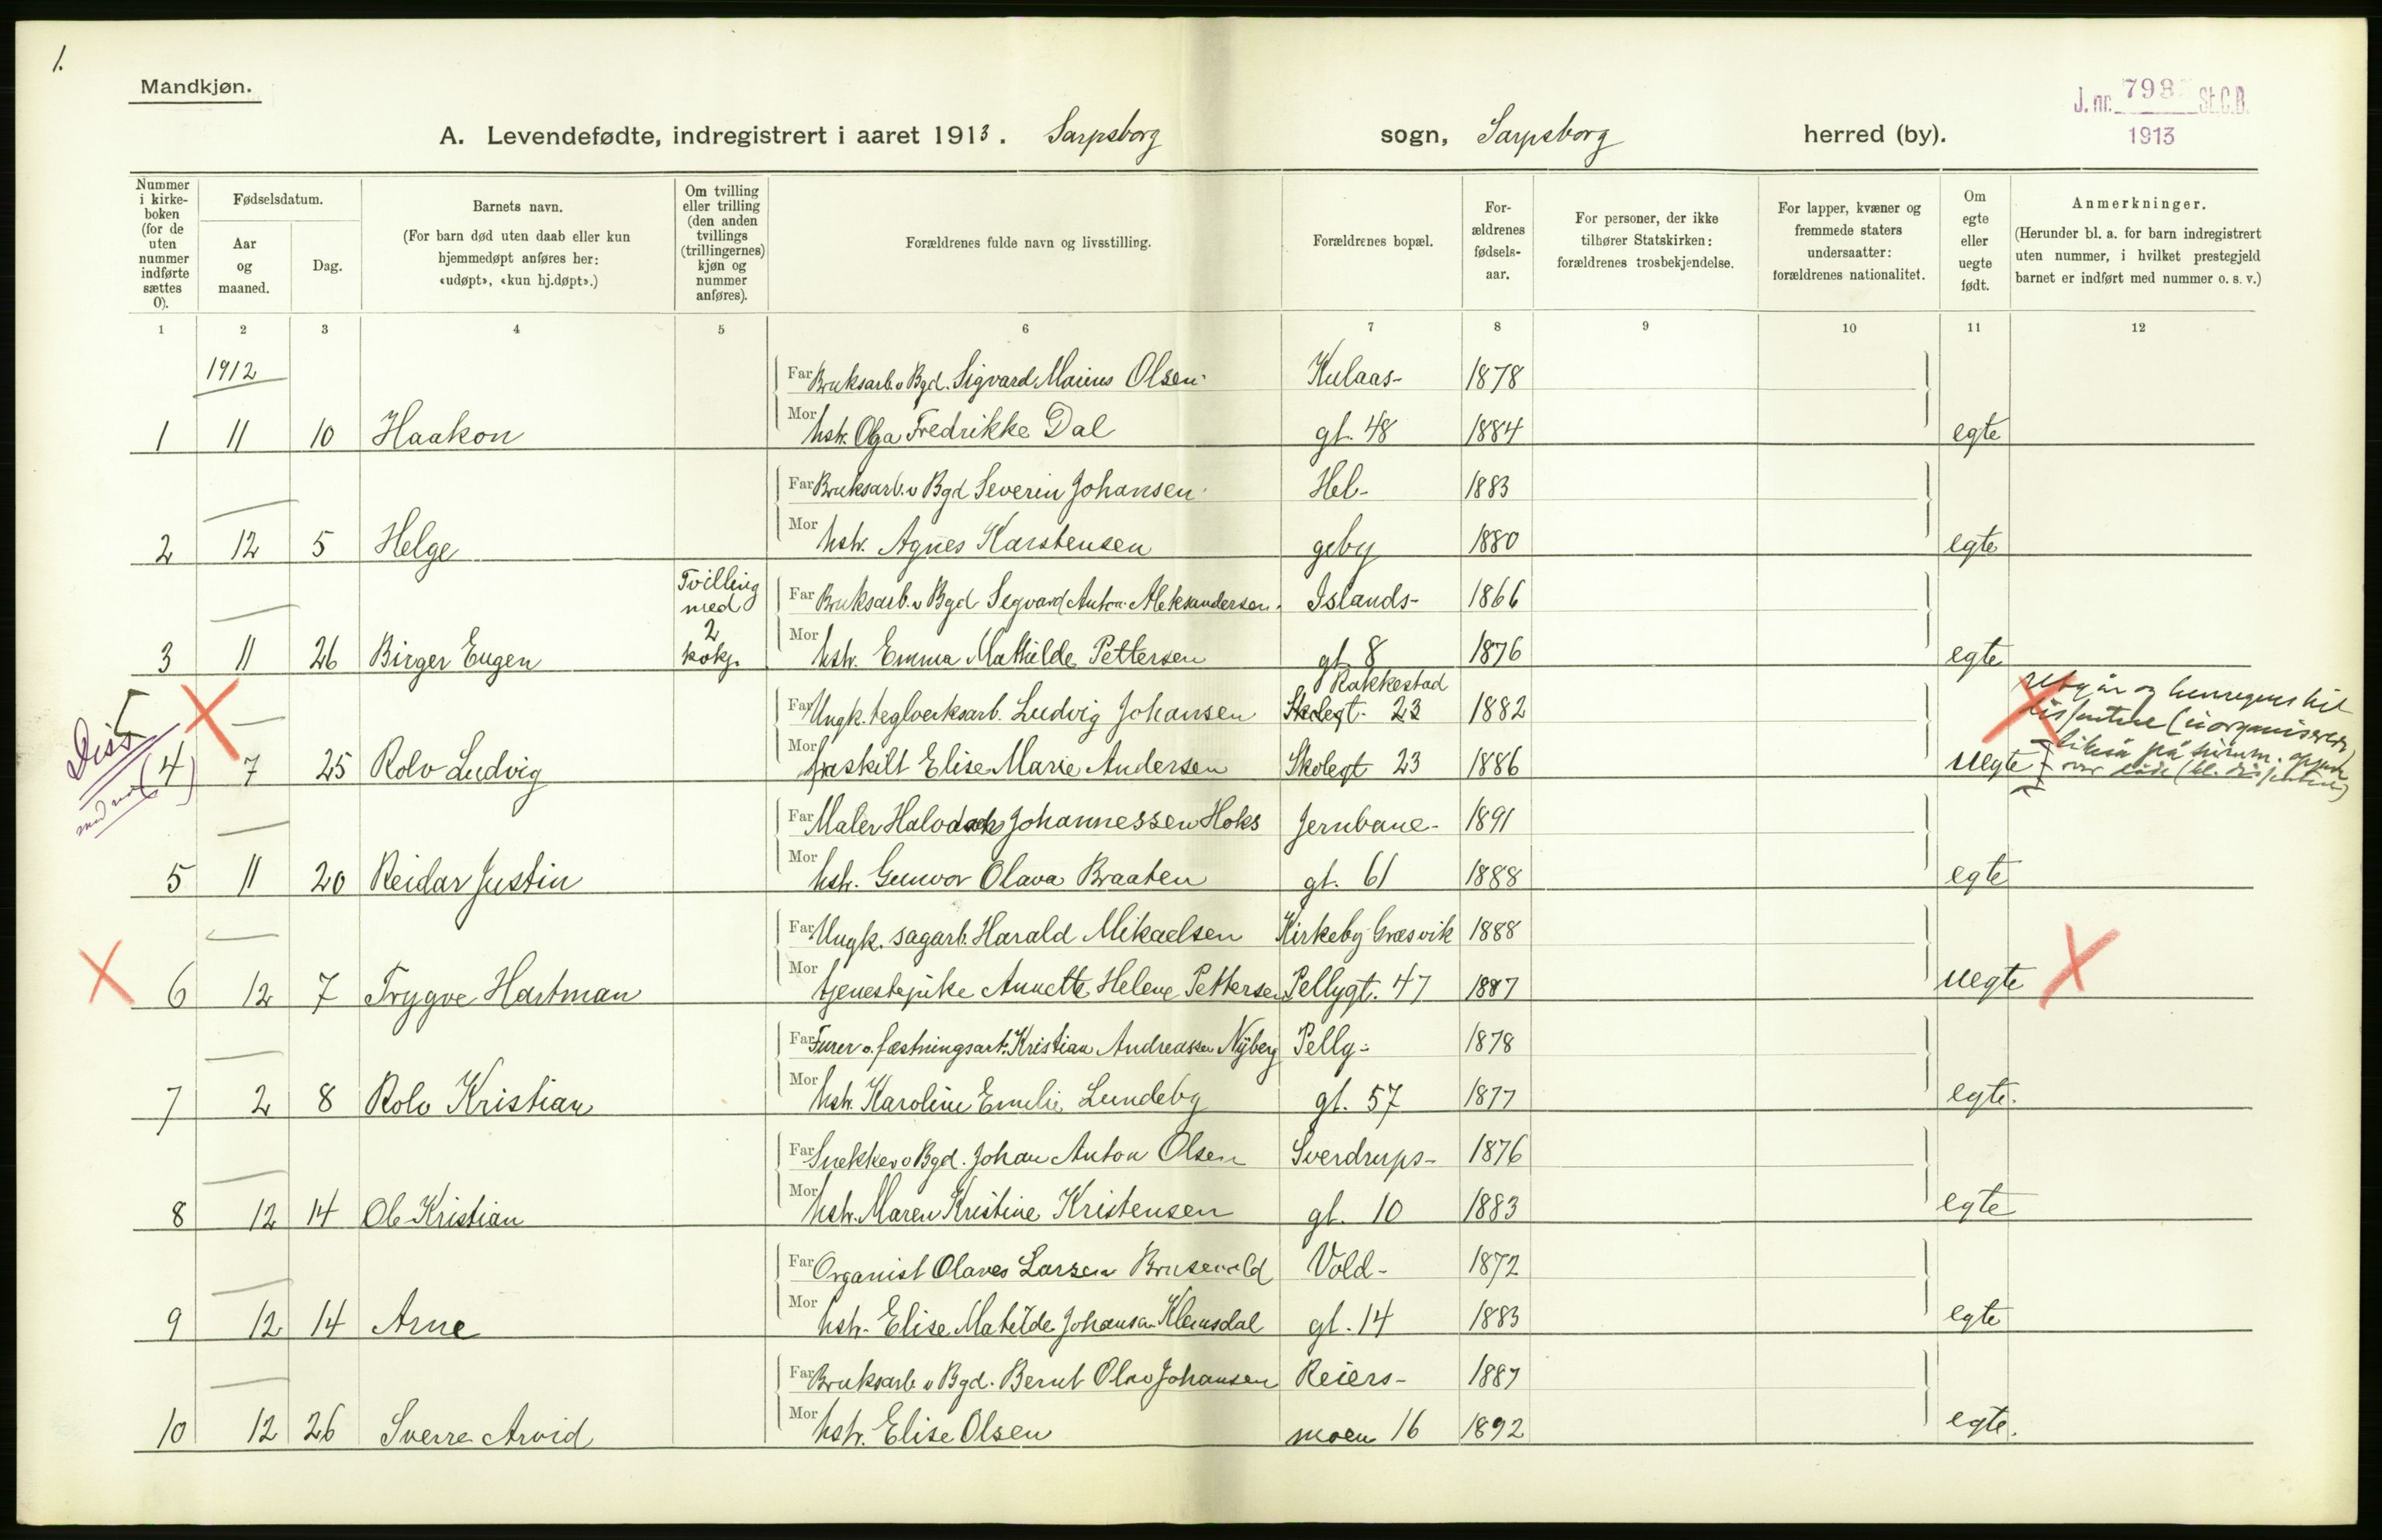 1.
Mandkjøn.
J. nr. 798 St.C.B.
1913
A. Levendefødte, indregistrert i aaret 1913. Sarpsborg sogn, Sarpsborg herred (by).
Nummer i kirkeboken (for de uten nummer indførte sættes 0).
Fødselsdatum.
Aar og maaned.
Dag.
Barnets navn.
(For barn død uten daab eller kun hjemmedøpt anføres her: «udøpt», «kun hj.døpt».)
Om tvilling eller trilling (den anden tvillings (trillingernes) kjøn og nummer anføres).
Forældrenes fulde navn og livsstilling.
Forældrenes bopæl.
Forældrenes fødselsaar.
For personer, der ikke tilhører Statskirken: forældrenes trosbekjendelse.
For lapper, kvæner og fremmede staters undersaatter: forældrenes nationalitet.
Om egte eller uegte født.
Anmerkninger.
(Herunder bl. a. for barn indregistrert uten nummer, i hvilket prestegjeld barnet er indført med nummer o. s. v.)
1 2 3 4 5 6 7 8 9 10 11 12
1912
Far Bruksarb. v Bgd. Sigvard Marius Olsen Kulaas- 1878
1 11 10 Haakon Mor hstr. Olga Fredrikke Dal gt. 48 1884 egte
Far Bruksarb. v Bgd Severin Johansen Hel- 1883
2 12 5 Helge Mor hstr. Agnes Karstensen geby 1880 egte
Tvilling med 2 kvkj.
Far Bruksarb. v Bgd Segvard Anton Aleksandersen Islands- 1866
3 11 26 Birger Eugen Mor hstr. Emma Mathilde Pettersen gt 8 1876 egte
Rakkestad
Far Ungk. teglverksarb. Ludvig Johansen Skolegt. 23 1882
Diss
5
(4) 7 25 Rolv Ludvig Mor fraskilt Elise Marie Andersen Skolegt 23 1886 uegte
Far Maler Halvdan Johannessen Hoks Jernbane- 1891
5 11 20 Reidar Justin Mor hstr. Gunvor Olava Braaten gt. 61 1888 egte
Far Ungk. sagarb. Harald Mikaelsen Kirkeby Græsvik 1888
6 12 7 Trygve Hartman Mor tjenestepike Annette Helene Pettersen Pellygt. 47 1887 uegte
Far Furer o. fæstningsarb. Kristian Andreassen Nyberg Pelly- 1878
7 2 8 Rolv Kristian Mor hstr. Karoline Emelie Lundeby gt. 57 1877 egte.
Far Snekker v Bgd. Johan Anton Olsen Sverdrups- 1876
8 12 14 Ole Kristian Mor hstr. Maren Kristine Kristensen gt. 10 1883 egte
Far Organist Olaves Larsen Vold- 1872
9 12 14 Arne Mor hstr. Elise Matilde Johansen Klemsdal gt. 14 1883 egte
Far Bruksarb v Bgd. Bernt Olav Johansen Reiers- 1887
10 12 26 Sverre Arvid Mor hstr. Elise Olsen moen 16 1892 egte.